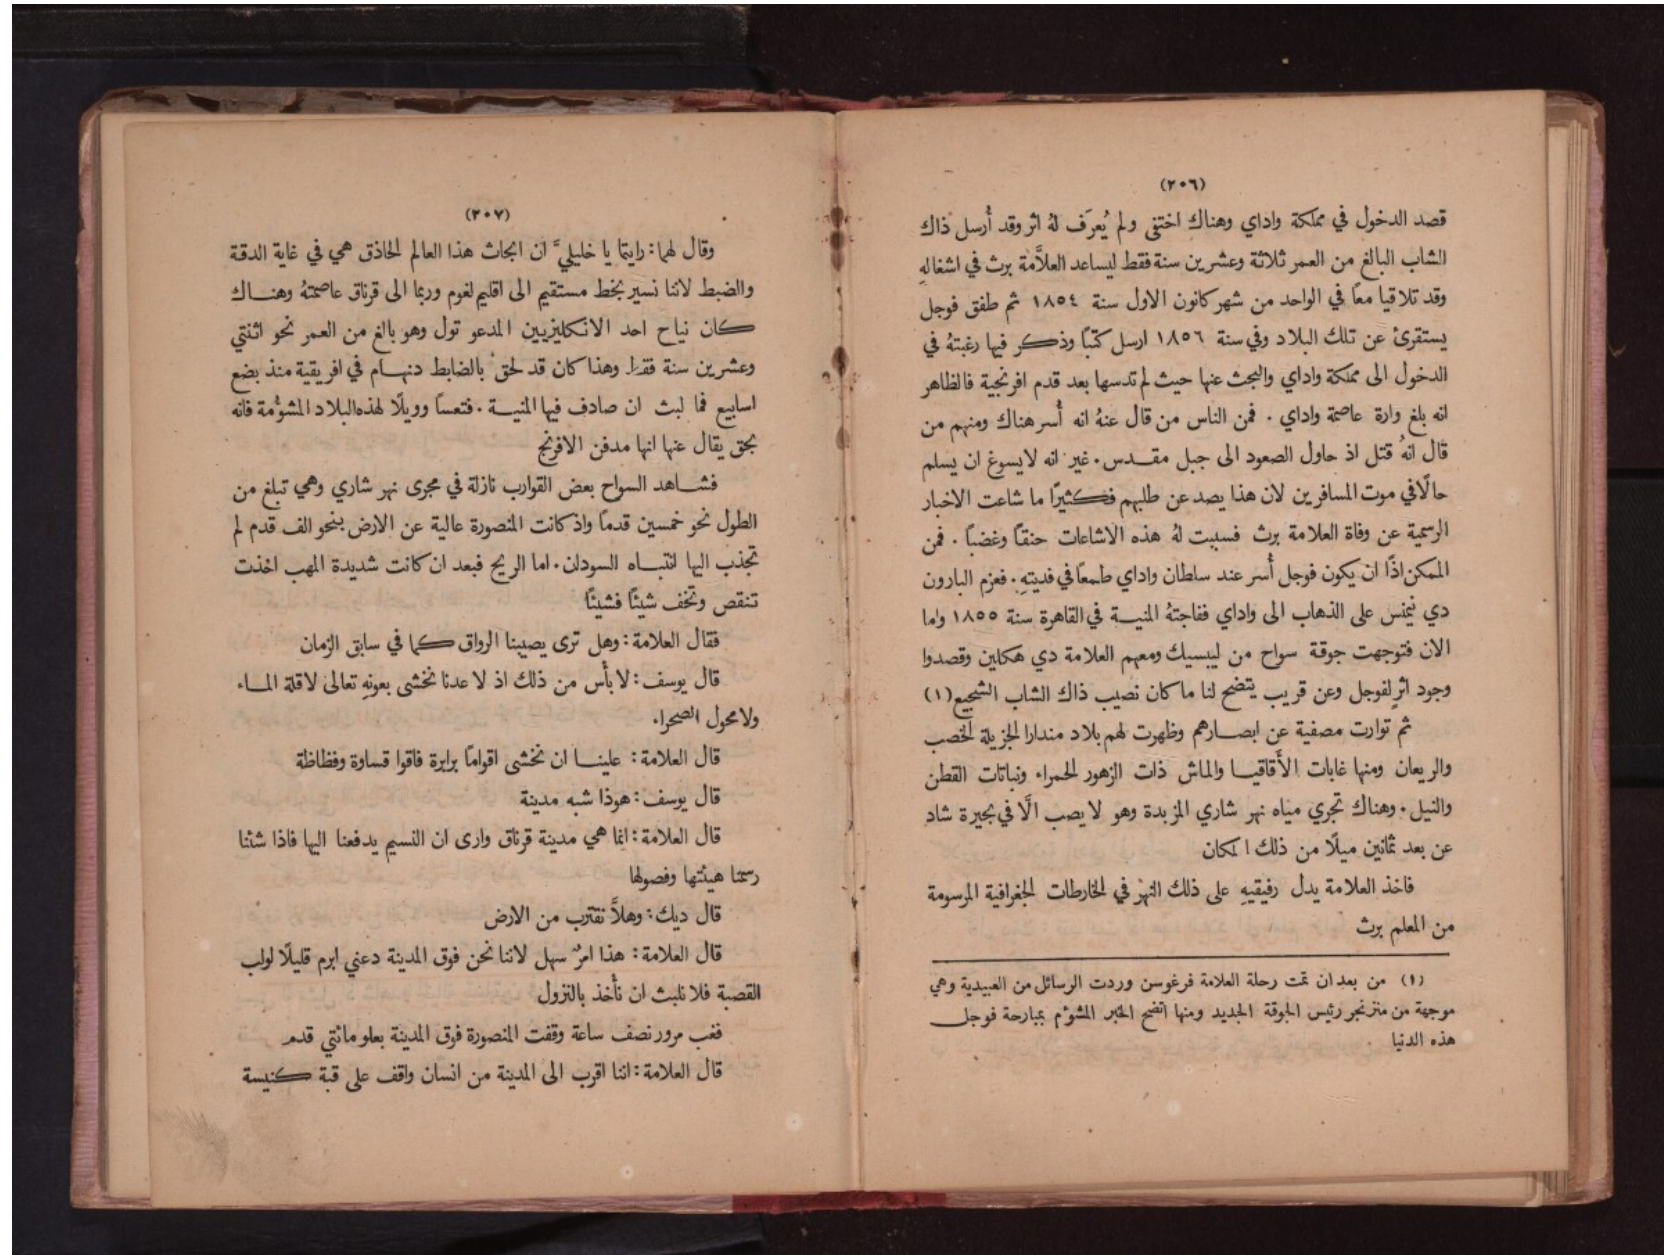 (٢٠٦)
قصد الدخول في مملكة واداي وهناك اختفى ولم يُعرَف لهُ اثر وقد أُرسل ذاك
الشاب البالغ من العمر ثلاثة وعشرين سنة فقط ليساعد العلاَّمة برث في اشغالهِ
وقد تلاقيا معًا في الواحد من شهر كانون الاول سنة ١٨٥٤ ثم طفق فوجل
يستقرئ عن تلك البلاد وفي سنة ١٨٥٦ ارسل كتبًا وذكر فيها رغبتهُ في
الدخول الى مملكة واداي والبحث عنها حيث لم تدسها بعد قدم افرنجية فالظاهر
انه بلغ وارة عاصمة واداي . فمن الناس من قال عنهُ انه أُسر هناك ومنهم من
قال انهُ قتل اذ حاول الصعود الى جبل مقدس. غير انه لا يسوغ ان يسلم
حالًا في موت المسافرين لان هذا يصد عن طلبهم فكثيرًا ما شاعت الاخبار
الرسمية عن وفاة العلامة برث فسببت لهُ هذه الاشاعات حنقًا وغضبًا . فمن
الممكن اذًا ان يكون فوجل أُسر عند سلطان واداي طمعًا في فديتهِ. فعزم البارون
دي نيمنس على الذهاب الى واداي ففاجتهُ المنية في القاهرة سنة ١٨٥٥ واما
الان فتوجهت جوقة سواح من ليبسيك ومعهم العلامة دي هكلين وقصدوا
وجود اثر لفوجل وعن قريب يتضح لنا ما كان نصيب ذاك الشاب الشجيع (١)
ثم توارت مصفية عن ابصارهم وظهرت لهم بلاد مندارا الجزيلة الخصب
والريعان ومنها غابات الأَقاقيا والماش ذات الزهور الحمراء ونباتات القطن
والنيل. وهناك تجري مياه نهر شاري المزبدة وهو لا يصب الَّا في بحيرة شاد
عن بعد ثمانين ميلًا من ذلك المكان
فاخذ العلامة يدل رفيقيهِ على ذلك النهر في الخارطات الجغرافية المرسومة
من المعلم برث
(١) من بعد ان تمت رحلة العلامة فرغوسن وردت الرسائل من العبيدية وهي
موجهة من منزنجر رئيس الجوقة الجديد ومنها اتضح الخبر المشؤم بمبارحة فوجل
هذه الدنيا
(٢٠٧)
وقال لهما: رايتما يا خليليَّ ان ابحاث هذا العالم الحاذق هي في غاية الدقة
والضبط لاننا نسير بخط مستقيم الى اقليم لغوم وربما الى قرناق عاصمتهُ وهناك
كان نياح احد الانكليزيين المدعو تول وهو بالغ من العمر نحو اثنتي
وعشرين سنة فقط وهذا كان قد لحق بالضابط دنهام في افريقية منذ بضع
اسابيع فما لبث ان صادف فيها المنية. فتعسًا وويلًا لهذه البلاد المشؤُمة فانه
بحق يقال عنها انها مدفن الافرنج
فشاهد السواح بعض القوارب نازلة في مجرى نهر شاري وهي تبلغ من
الطول نحو خمسين قدمًا واذ كانت المنصورة عالية عن الارض بنحو الف قدم لم
تجذب اليها انتباه السودان. اما الريح فبعد ان كانت شديدة المهب اخذت
تنقص وتخف شيئًا فشيئًا
فقال العلامة: وهل ترى يصيبنا الرواق كما في سابق الزمان
قال يوسف: لا بأس من ذلك اذ لا عدنا نخشى بعونهِ تعالى لا قلة الماء
ولا محول الصحراء
قال العلامة: علينا ان نخشى اقوامًا برابرة فاقوا قساوة وفظاظة
قال يوسف: هوذا شبه مدينة
قال العلامة: انما هي مدينة قرناق وارى ان النسيم يدفعنا اليها فاذا شئنا
رسمنا هيئتها وفصولها
قال ديك: وهلاَّ نقترب من الارض
قال العلامة: هذا امرٌ سهل لاننا نحن فوق المدينة دعني ابرم قليلًا لولب
القصبة فلا نلبث ان نأخذ بالنزول
فغب مرور نصف ساعة وقفت المنصورة فوق المدينة بعلو مائتي قدم
قال العلامة: اننا اقرب الى المدينة من انسان واقف على قبة كنيسة